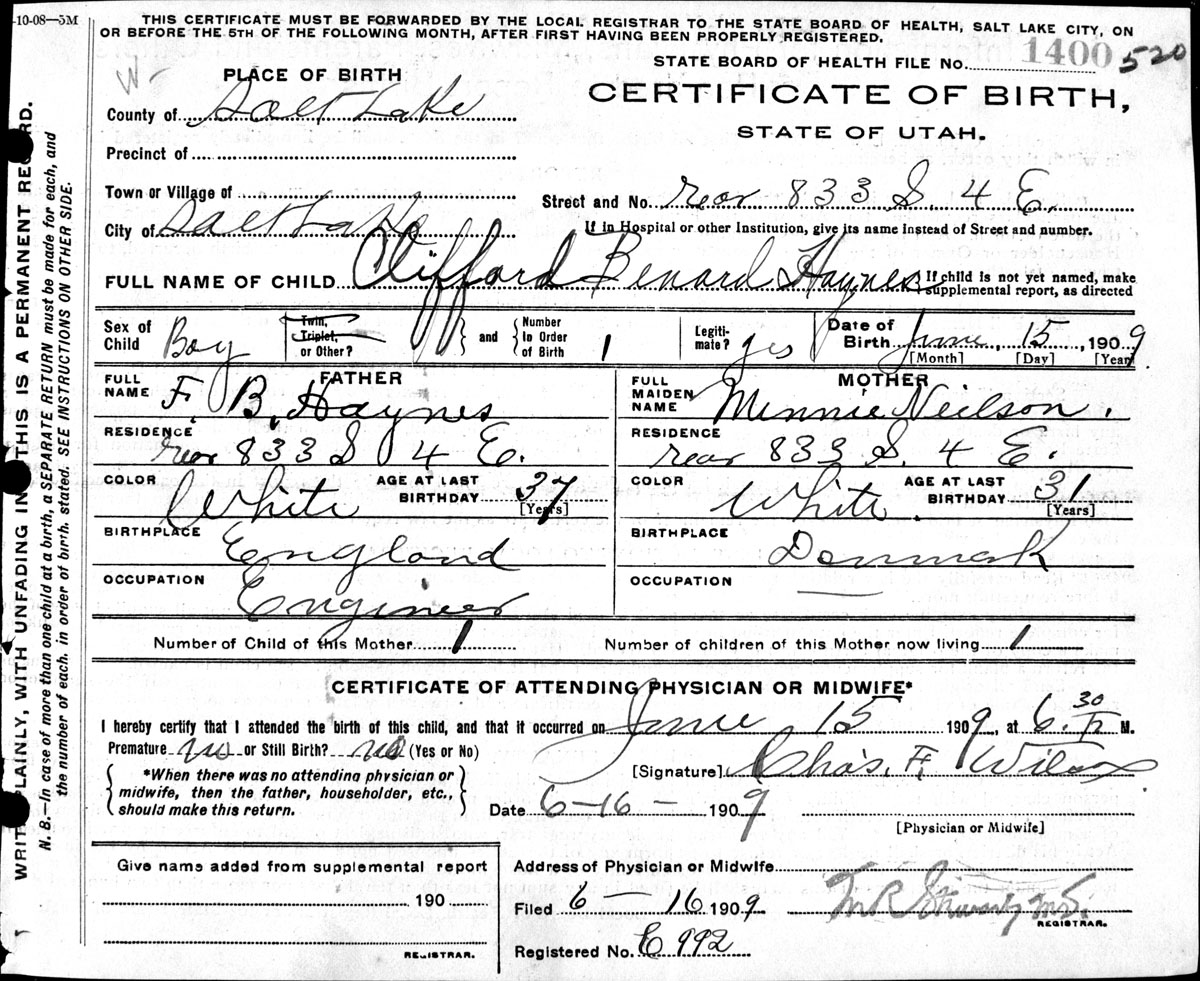 -10-08—5M
THIS CERTIFICATE MUST BE FORWARDED BY THE LOCAL REGISTRAR TO THE STATE BOARD OF HEALTH, SALT LAKE CITY, ON
OR BEFORE THE 5TH OF THE FOLLOWING MONTH, AFTER FIRST HAVING BEEN PROPERLY REGISTERED.
STATE BOARD OF HEALTH FILE NO. 1400 520
W-
PLACE OF BIRTH
CERTIFICATE OF BIRTH,
STATE OF UTAH.
County of Salt Lake
Precinct of
Town or Village of
Street and No. rear 833 S. 4 E.
City of Salt Lake
If in Hospital or other Institution, give its name instead of Street and number.
FULL NAME OF CHILD Clifford Benard Haynes If child is not yet named, make supplemental report, as directed
Sex of Child Boy Twin, Triplet, or Other? and Number In Order of Birth 1 Legitimate? yes Date of Birth June, 15, 1909
[Month] [Day] [Year]
FATHER MOTHER
FULL NAME F. B. Haynes FULL MAIDEN NAME Minnie Neilson.
RESIDENCE rear 833 S 4 E. RESIDENCE rear 833 S. 4 E.
COLOR White AGE AT LAST BIRTHDAY 37 [Years] COLOR White. AGE AT LAST BIRTHDAY 31 [Years]
BIRTHPLACE England BIRTHPLACE Denmark
OCCUPATION Engineer OCCUPATION —
Number of Child of this Mother 1 Number of children of this Mother now living 1
CERTIFICATE OF ATTENDING PHYSICIAN OR MIDWIFE*
I hereby certify that I attended the birth of this child, and that it occurred on June 15 1909, at 6.30 P. M.
Premature no or Still Birth? no (Yes or No)
*When there was no attending physician or
midwife, then the father, householder, etc.,
should make this return.
[Signature] Chas. F. Wilcox
Date 6-16- 1909
[Physician or Midwife]
Give name added from supplemental report
190
REGISTRAR.
Address of Physician or Midwife
Filed 6 - 16 1909 M R Stewart M.D.
REGISTRAR.
Registered No. E 992
WRITE PLAINLY, WITH UNFADING INK THIS IS A PERMANENT RECORD.
N. B.—In case of more than one child at a birth, a SEPARATE RETURN must be made for each, and
the number of each, in order of birth, stated. SEE INSTRUCTIONS ON OTHER SIDE.